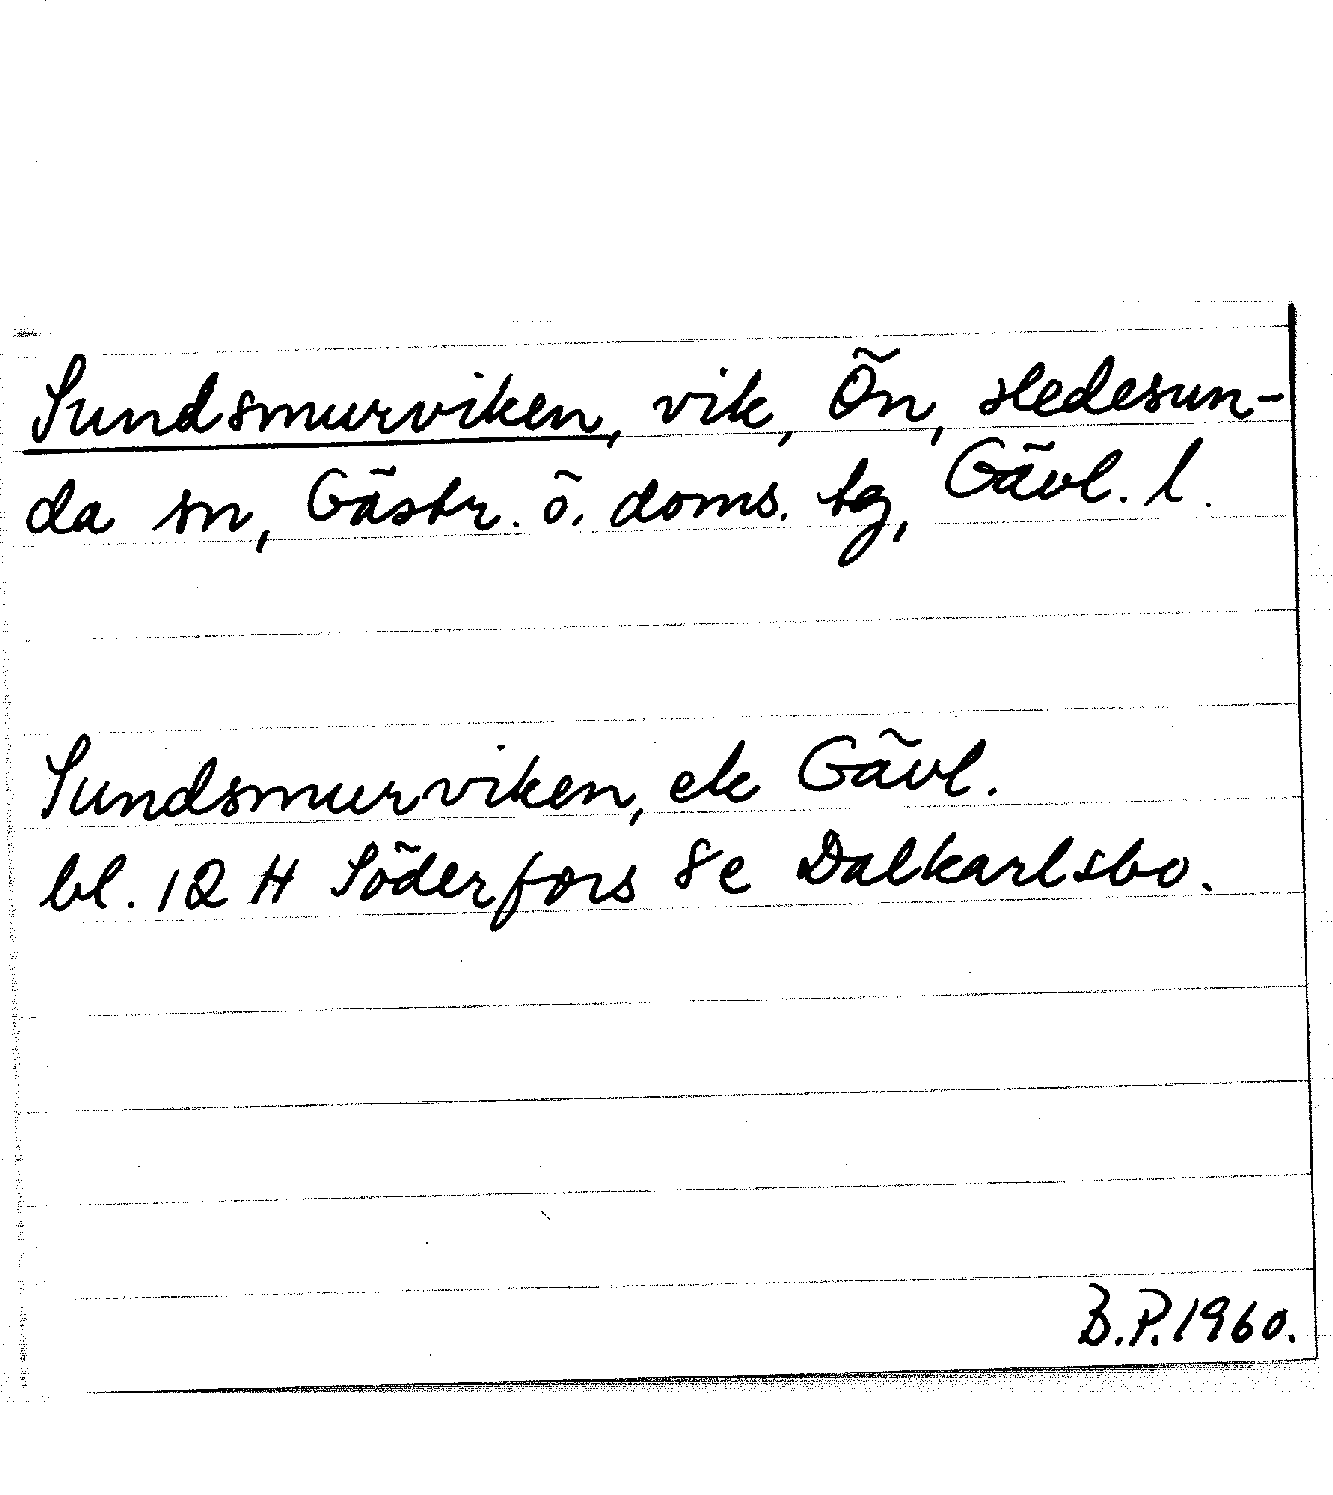 Sundsmurviken, vik, Ön, Hedesun-
da sn, Gästr. ö. doms. tg, Gävl. l.
Sundsmurviken, ek Gävl.
bl. 12 H Söderfors 8e Dalkarlsbo.
B.P. 1960.